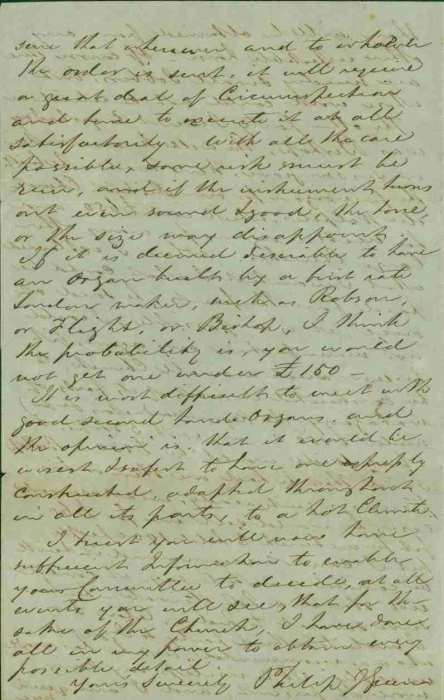 sure that whenever and to whoever
the order is sent, it will require
a great deal of Circumspection
and time to execute it at all
satisfactorily. With all the care
possible, some risk must be
run, and if the instrument turns
out even sound & good, the tone,
or the size may disappoint.
If it is deemed desirable to have
an Organ built by a first rate
London maker, such as Robson,
or Flight, or Bishop, I think
the probability is, you would
not get one under £150 —
It is most difficult to meet with
good second hand Organs, and
the opinion is that it would be
wisest & safest to have one expressly
Constructed, adapted throughout
in all its parts, to a hot Climate
I trust you will now have
sufficient Information to enable
your Committee to decide, at all
events you will see, that for the
sake of the Church I have done
all in my power to obtain every
possible detail.
Yours Sincerely Philip